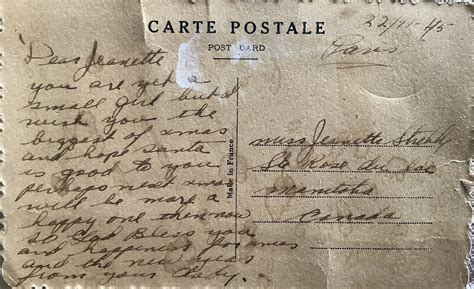 CARTE POSTALE
POST CARD
22/11-45
Paris
Dear Jeanette
you are yet a
small girl but I
wish you the
biggest of xmas
and hope santa
is good to you
perhaps next xmas
will be more a
happy one then now
so God Bless you
and happiness for xmas
and the new years
from your
Made in France
Miss Jeanette
Ste Rose du Lac
Manitoba
Canada